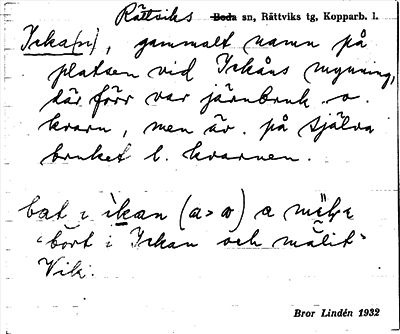 Rättviks Boda sn, Rättviks tg, Kopparb. l.
Icka(n), gammalt namn på
platsen vid Ickåns mynning,
där förr var järnbruk o.
kvarn, men äv. på själva
bruket l. kvarnen.
bat i ikan (a>a) a
"bort i Ickan och mälit"
Vik.
Bror Lindén 1932